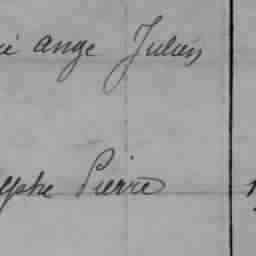 ie ange Julien
lphe Pierre